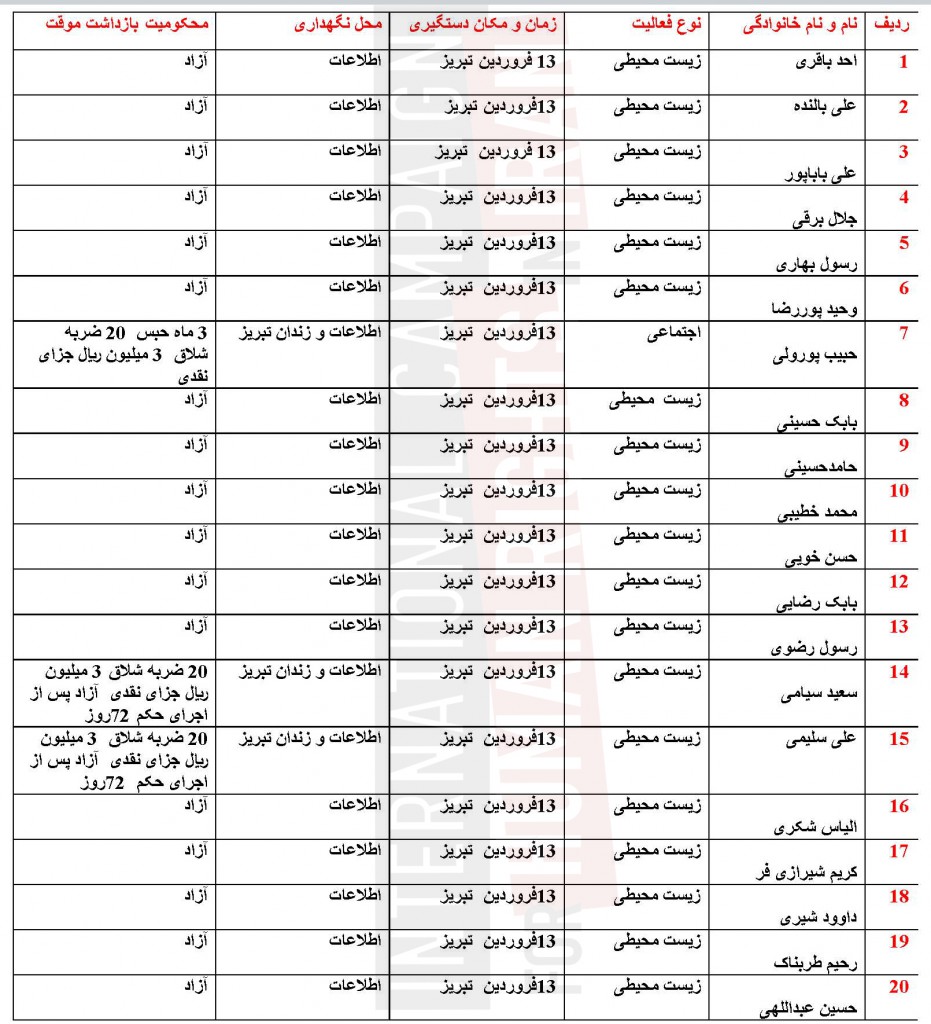 ردیف نام و نام خانوادگی نوع فعالیت زمان و مکان دستگیری محل نگهداری محکومیت بازداشت موقت
1 احد باقری زیست محیطی 13 فروردین تبریز اطلاعات آزاد
2 علی بالنده زیست محیطی 13فروردین تبریز اطلاعات آزاد
3 علی باباپور زیست محیطی 13 فروردین تبریز اطلاعات آزاد
4 جلال برقی زیست محیطی 13فروردین تبریز اطلاعات آزاد
5 رسول بهاری زیست محیطی 13فروردین تبریز اطلاعات آزاد
6 وحید پوررضا زیست محیطی 13فروردین تبریز اطلاعات آزاد
7 حبیب پورولی اجتماعی 13فروردین تبریز اطلاعات و زندان تبریز 3 ماه حبس 20 ضربه
شلاق 3 میلیون ریال جزای
نقدی
8 بابک حسینی زیست محیطی 13فروردین تبریز اطلاعات آزاد
9 حامدحسینی زیست محیطی 13فروردین تبریز اطلاعات آزاد
10 محمد خطیبی زیست محیطی 13فروردین تبریز اطلاعات آزاد
11 حسن خویی زیست محیطی 13فروردین تبریز اطلاعات آزاد
12 بابک رضایی زیست محیطی 13فروردین تبریز اطلاعات آزاد
13 رسول رضوی زیست محیطی 13فروردین تبریز اطلاعات آزاد
14 سعید سیامی زیست محیطی 13فروردین تبریز اطلاعات و زندان تبریز 20 ضربه شلاق 3 میلیون
ریال جزای نقدی آزاد پس از
اجرای حکم 72روز
15 علی سلیمی زیست محیطی 13فروردین تبریز اطلاعات و زندان تبریز 20 ضربه شلاق 3 میلیون
ریال جزای نقدی آزاد پس از
اجرای حکم 72روز
16 الیاس شکری زیست محیطی 13فروردین تبریز اطلاعات آزاد
17 کریم شیرازی فر زیست محیطی 13فروردین تبریز اطلاعات آزاد
18 داوود شیری زیست محیطی 13فروردین تبریز اطلاعات آزاد
19 رحیم طربناک زیست محیطی 13فروردین تبریز اطلاعات آزاد
20 حسین عبداللهی زیست محیطی 13فروردین تبریز اطلاعات آزاد
INTERNATIONAL CAMPAIGN
FOR HUMAN RIGHTS IN IRAN